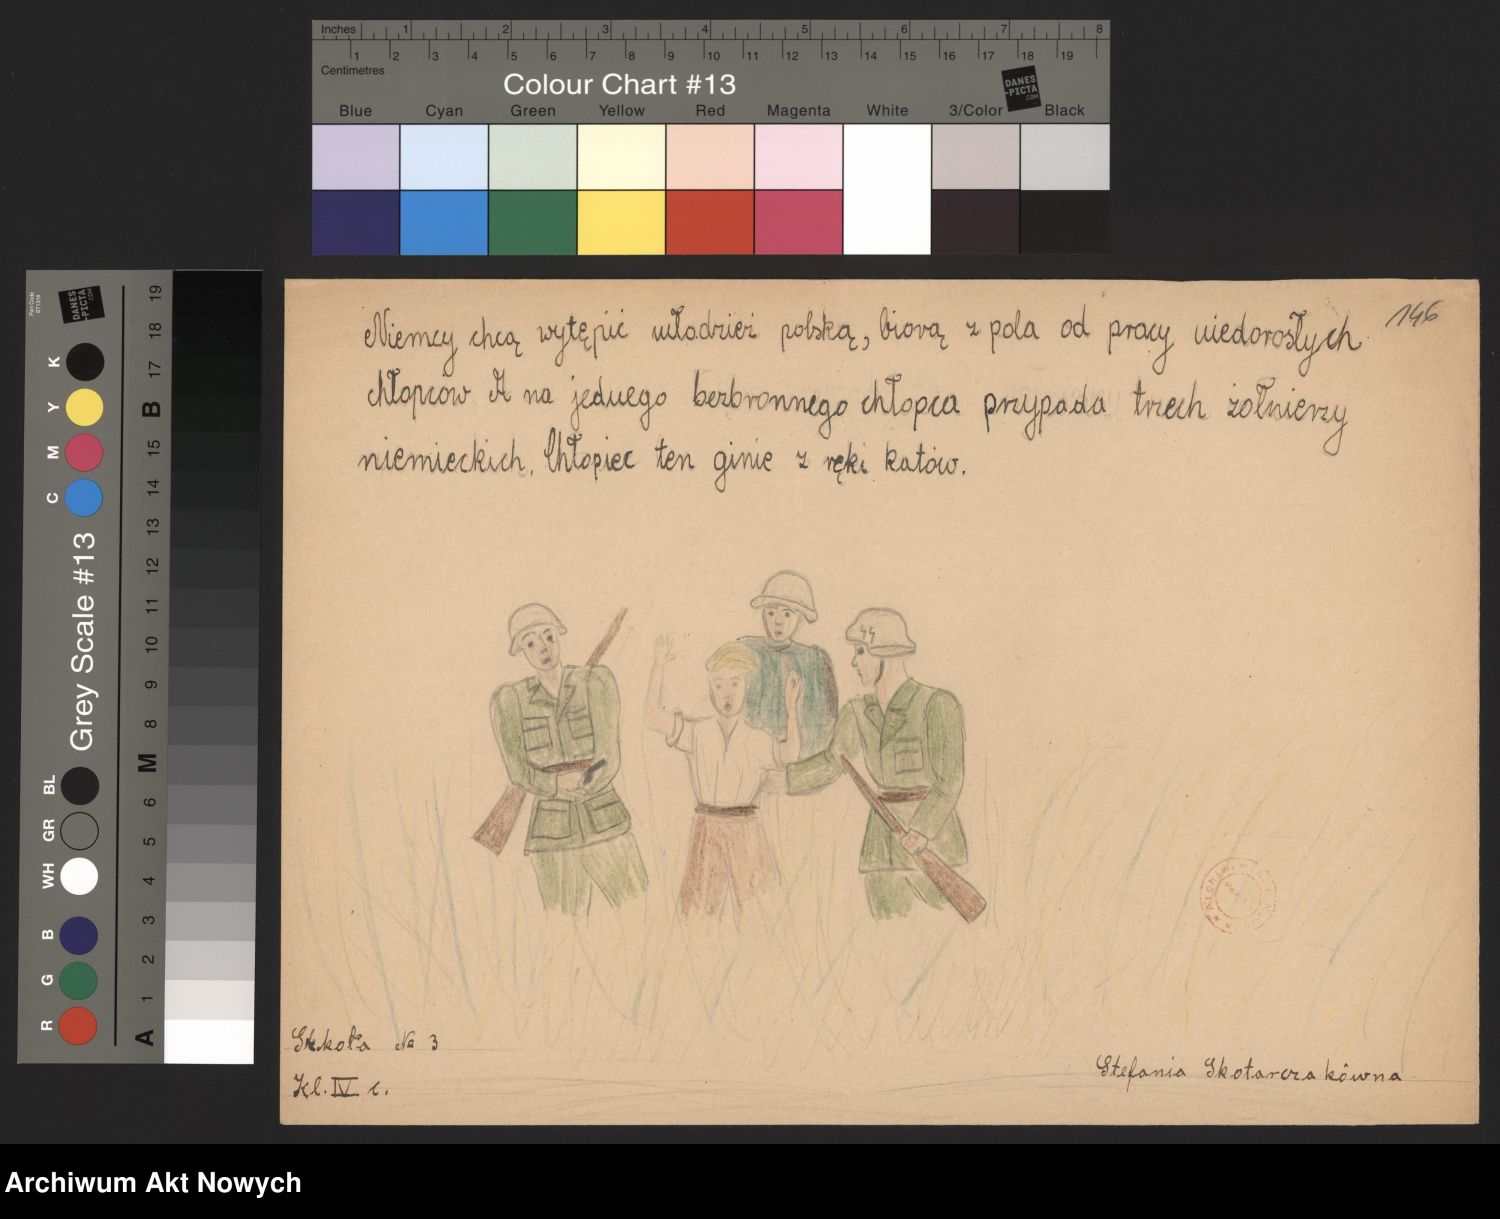 Inches 1 2 3 4 5 6 7 8
1 2 3 4 5 6 7 8 9 10 11 12 13 14 15 16 17 18 19
Centimetres
Colour Chart #13
DANES
-PICTA
.COM
Blue Cyan Green Yellow Red Magenta White 3/Color Black
Part Code
ST1316
DANES
-PICTA
.COM
Grey Scale #13
R G B WH GR BL C M Y K
A 1 2 3 4 5 6 M 8 9 10 11 12 13 14 15 B 17 18 19
146
Niemcy chcą wytępić młodzież polską, biorą z pola od pracy niedorosłych
chłopców. A na jednego bezbronnego chłopca przypada trzech żołnierzy
niemieckich. Chłopiec ten ginie z ręki katów.
Szkoła № 3
Kl. IV c.
Stefania Skotarczakówna
Archiwum Akt Nowych